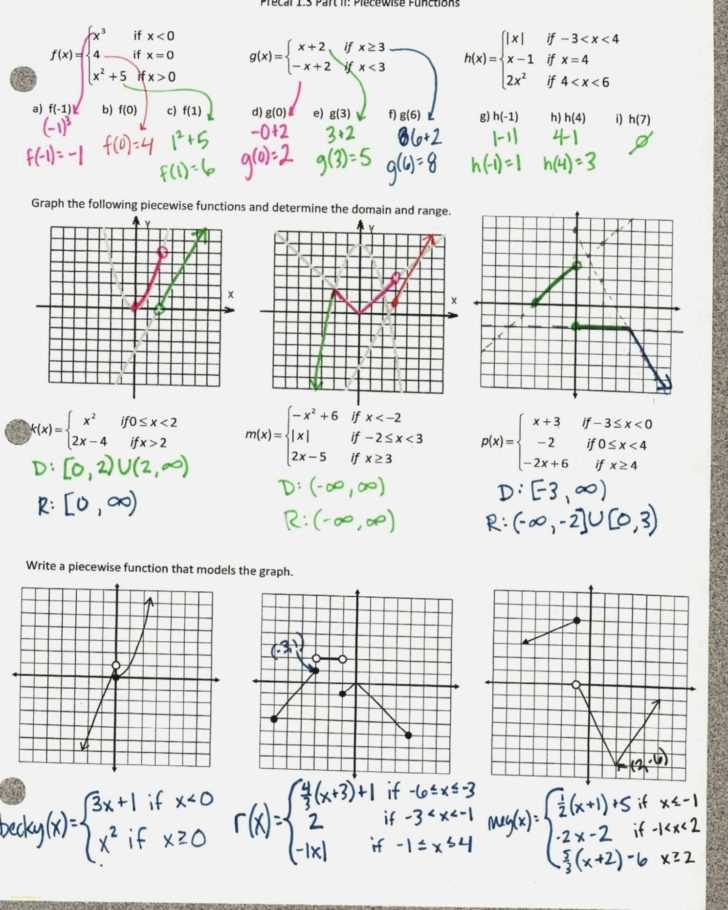 Precal 1.3 Part II: Piecewise Functions
f(x) = { x³ if x < 0
4 if x = 0
x² + 5 if x > 0
g(x) = { x + 2, if x ≥ 3
−x + 2 if x < 3
h(x) = { |x| if −3 < x < 4
x − 1 if x = 4
2x² if 4 < x < 6
a) f(-1) b) f(0) c) f(1) d) g(0) e) g(3) f) g(6) g) h(-1) h) h(4) i) h(7)
(-1)³
f(-1)= -1
f(0)=4
1²+5
f(1)=6
-0+2
g(0)=2
3+2
g(3)=5
6+2
g(6)=8
|-1|
h(-1)=1
4-1
h(4)=3
∅
Graph the following piecewise functions and determine the domain and range.
Y Y
X X
k(x) = { x² if 0 ≤ x < 2
2x − 4 if x > 2
D: [0,2)U(2,∞)
R: [0,∞)
m(x) = { −x² + 6 if x < −2
|x| if −2 ≤ x < 3
2x − 5 if x ≥ 3
D: (-∞,∞)
R: (-∞,∞)
p(x) = { x + 3 if −3 ≤ x < 0
−2 if 0 ≤ x < 4
−2x + 6 if x ≥ 4
D: [-3,∞)
R: (-∞,-2]U[0,3)
Write a piecewise function that models the graph.
(2,-6)
becky(x)= { 3x+1 if x<0
x² if x≥0
r(x)= { 4/3(x+3)+1 if -6≤x≤-3
2 if -3<x<-1
-|x| if -1≤x≤4
meg(x)= { 1/2(x+1)+5 if x≤-1
-2x-2 if -1<x<2
5/3(x+2)-6 x≥2